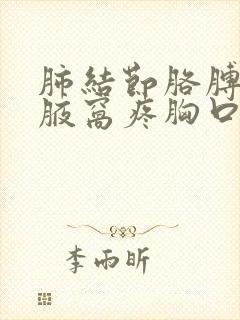 肺結節胳膊
腋窩疼胸口
李雨昕